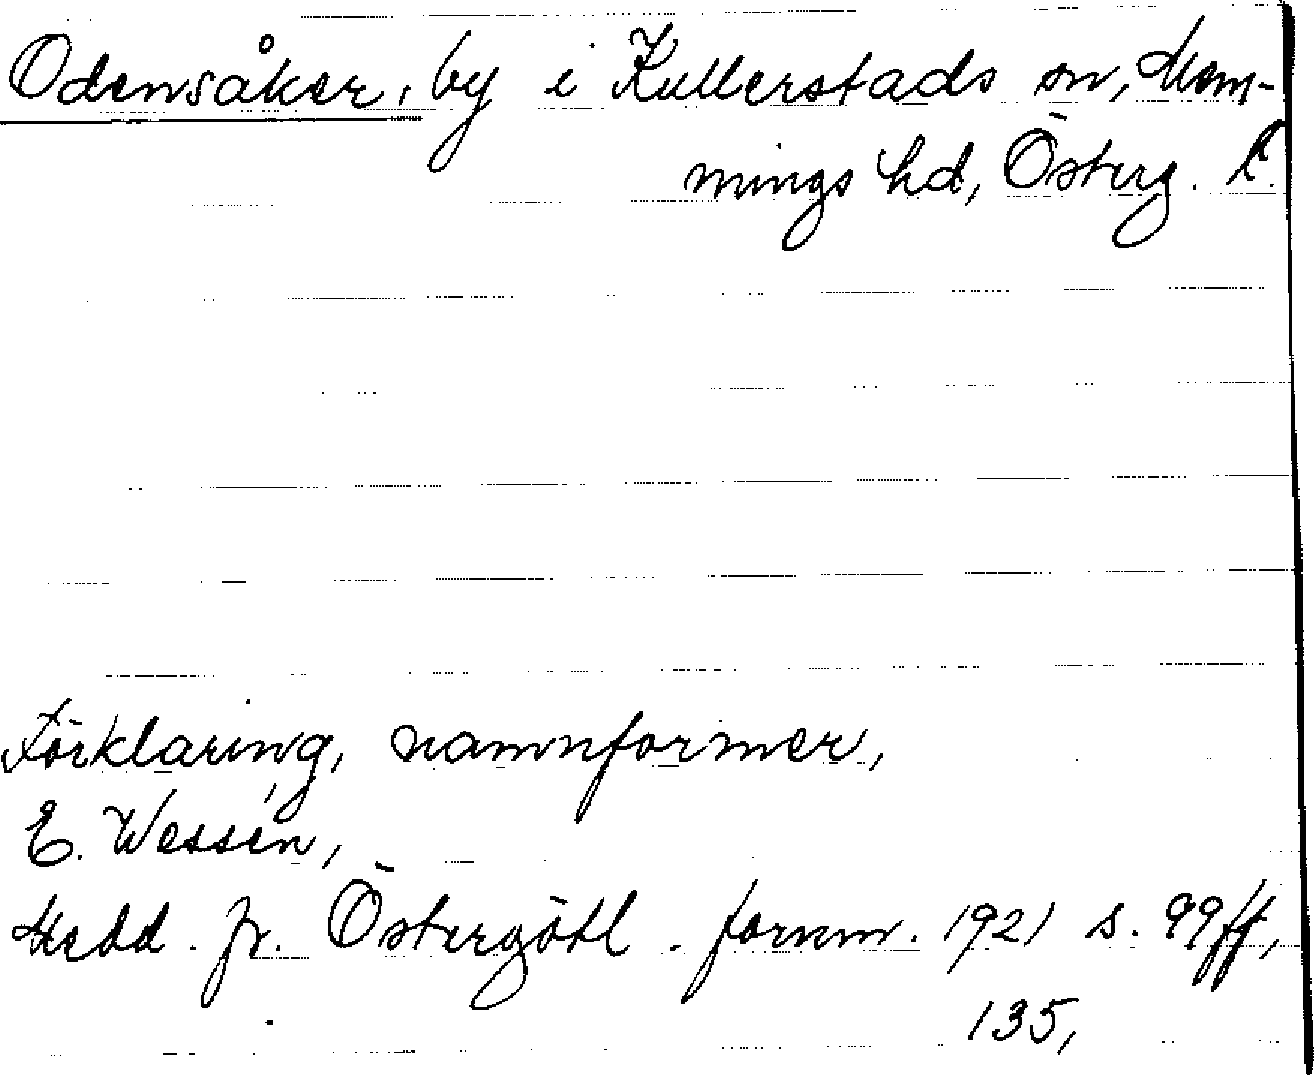 Odensåker, by i Kullerstads sn, Mem-
mings hd, Österg. l.
Förklaring, namnformer,
E. Wessén,
Medd. fr. Östergötl. fornm. 1921 s. 99ff,
135,